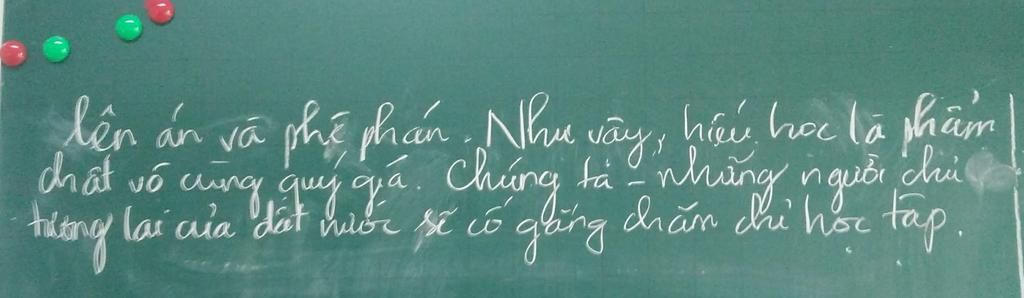 lên án và phê phán. Như vậy, hiếu học là phẩm
chất vô cùng quý giá. Chúng ta - những người chủ
tương lai của đất nước sẽ cố gắng chăm chỉ học tập.